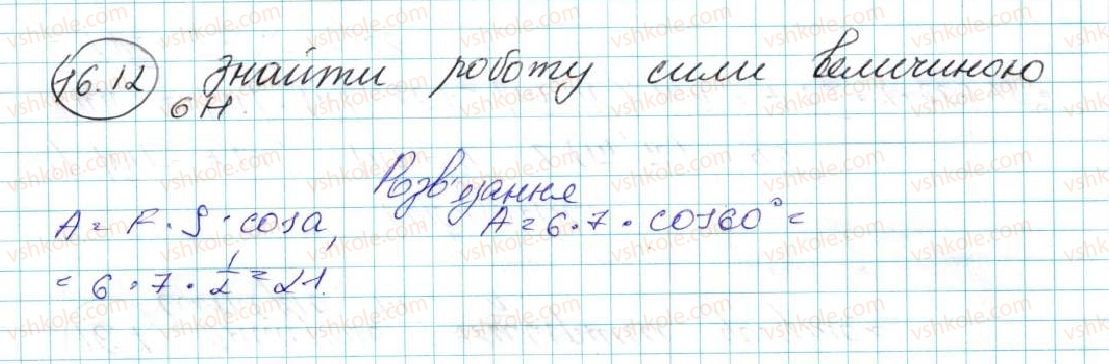 16.12 Знайти роботу сили величиною
6Н.
Розв'язання
A = F · S · cosα, A = 6 · 7 · cos60° =
= 6 · 7 · 1/2 = 21.